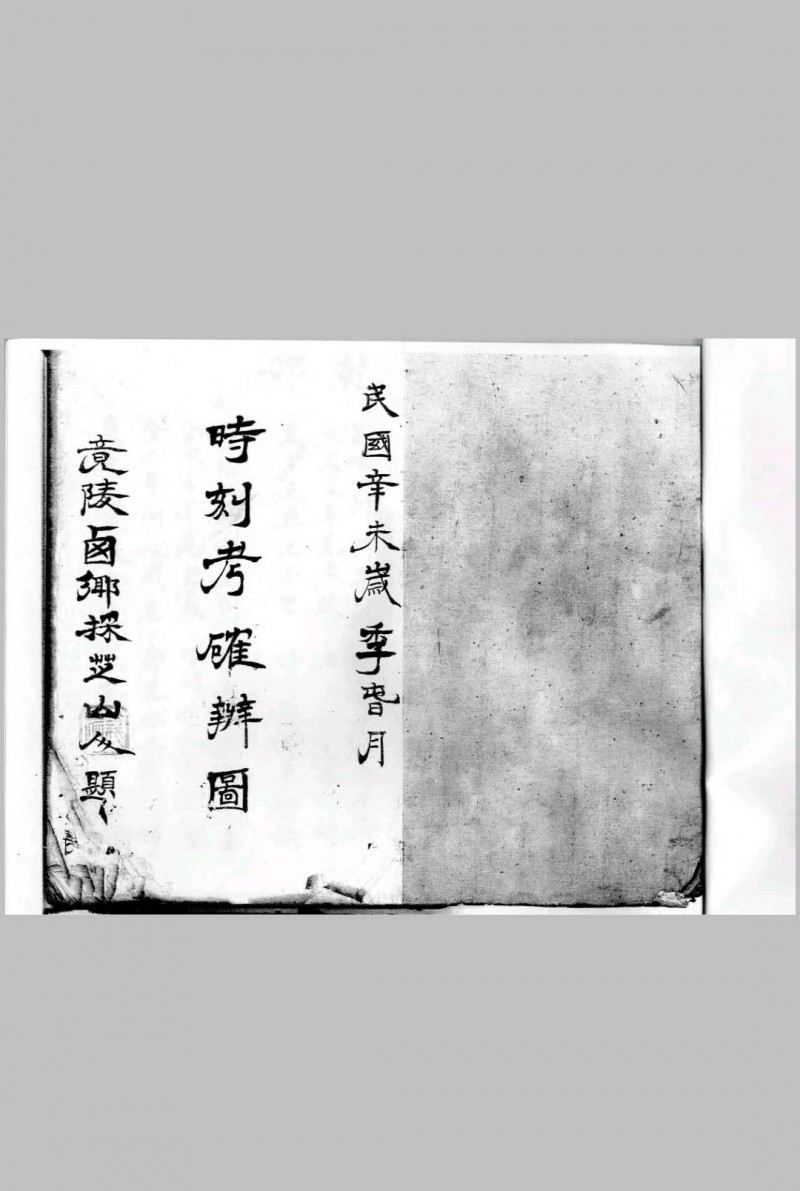 民國辛未歲季旾月
時刻考確辨圖
竟陵鹵鄉探芝山人題